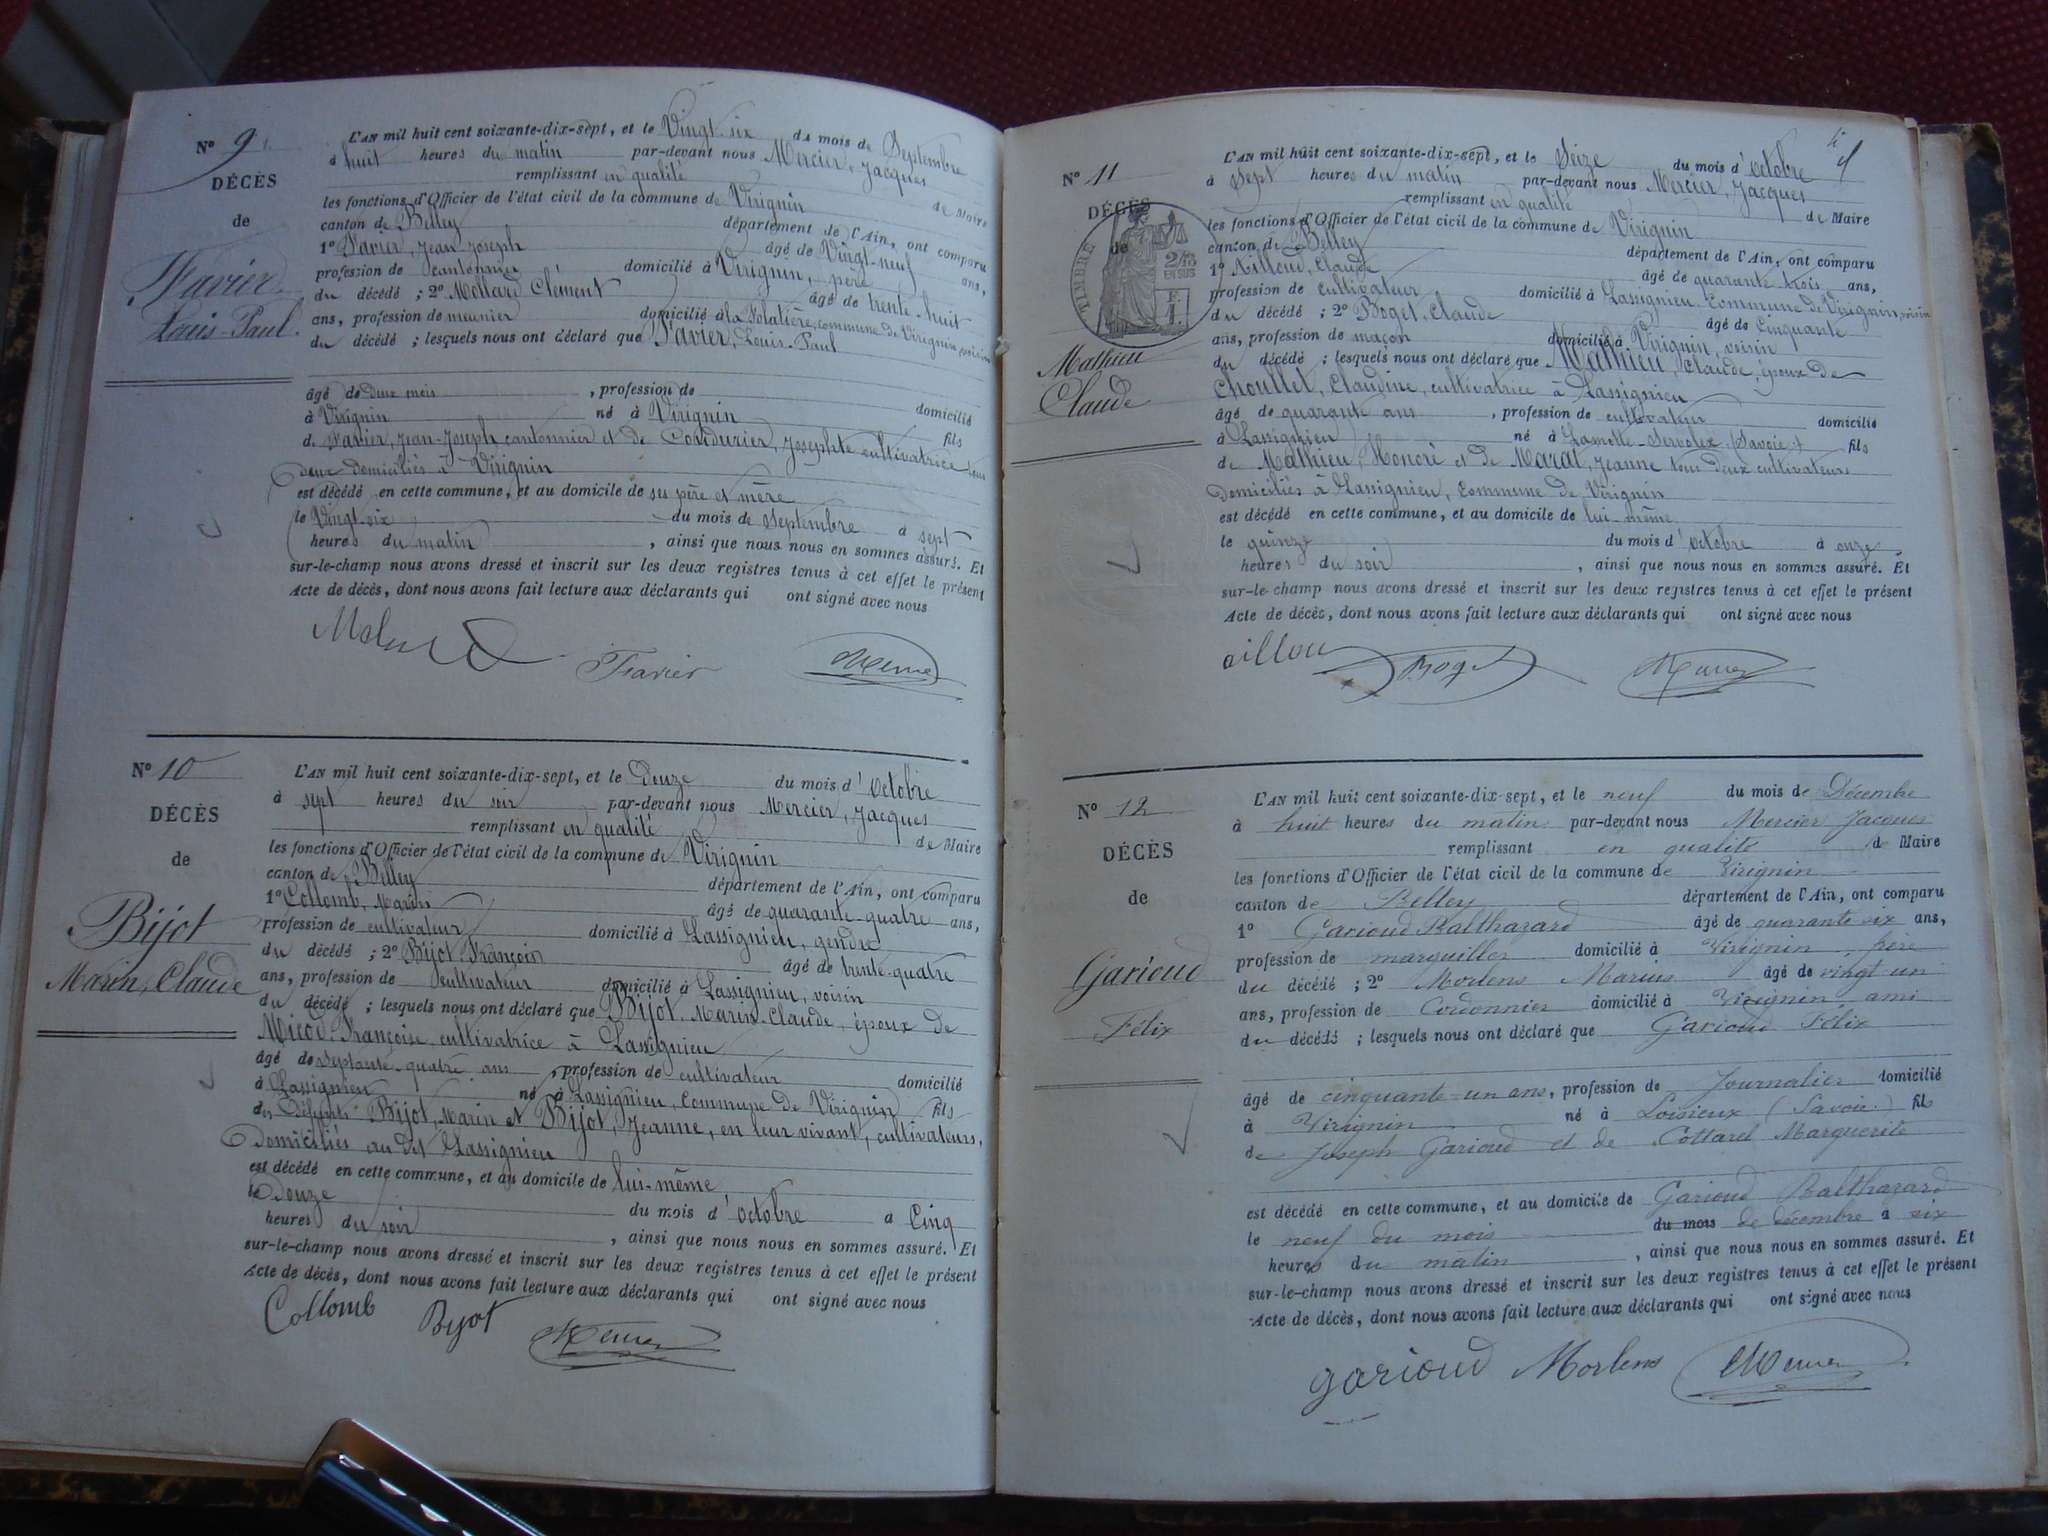 N° 9
DÉCÈS
de
Favier
Louis-Paul.
L'AN mil huit cent soixante-dix-sept, et le Vingt-six du mois de Septembre
à huit heures du matin par-devant nous Mercier, Jacques
remplissant en qualité de Maire
les fonctions d'Officier de l'état civil de la commune de Virignin
canton de Belley département de l'Ain, ont comparu
1° Favier, Jean-Joseph âgé de Vingt-neuf ans,
profession de cantonnier domicilié à Virignin, père
du décédé ; 2° Mollard Clément âgé de trente-huit
ans, profession de meunier domicilié à la commune de Virignin, voisin
du décédé ; lesquels nous ont déclaré que Favier, Louis-Paul
âgé de deux mois , profession de domicilié
à Virignin né à Virignin fils
de Favier, Jean-Joseph cantonnier et de Coudurier, Josephte cultivatrice tous
deux domiciliés à Virignin
est décédé en cette commune, et au domicile de ses père et mère
le Vingt-six du mois de Septembre à sept
heures du matin , ainsi que nous nous en sommes assuré. Et
sur-le-champ nous avons dressé et inscrit sur les deux registres tenus à cet effet le présent
Acte de décès, dont nous avons fait lecture aux déclarants qui ont signé avec nous
Favier Mercier
N° 10
DÉCÈS
de
Bijot
Marin, Claude
L'AN mil huit cent soixante-dix-sept, et le Douze du mois d'Octobre
à sept heures du soir par-devant nous Mercier, Jacques
remplissant en qualité de Maire
les fonctions d'Officier de l'état civil de la commune de Virignin
canton de Belley département de l'Ain, ont comparu
1° Collomb, Marin âgé de quarante-quatre ans,
profession de cultivateur domicilié à Lassignieu, gendre
du décédé ; 2° Bijot François âgé de trente-quatre
ans, profession de cultivateur domicilié à Lassignieu, voisin
du décédé ; lesquels nous ont déclaré que Bijot, Marin-Claude, époux de
Micod Françoise cultivatrice à Lassignieu
âgé de septante-quatre ans , profession de cultivateur domicilié
à Lassignieu né à Lassignieu, commune de Virignin fils
des défunts Bijot, Marin et Bijot, Jeanne, en leur vivant, cultivateurs,
domiciliés au dit Lassignieu
est décédé en cette commune, et au domicile de lui-même
le Douze du mois d'octobre à Cinq
heures du soir , ainsi que nous nous en sommes assuré. Et
sur-le-champ nous avons dressé et inscrit sur les deux registres tenus à cet effet le présent
Acte de décès, dont nous avons fait lecture aux déclarants qui ont signé avec nous
Collomb Bijot Mercier
N° 11
DÉCÈS
de
TIMBRE
2/10
EN SUS
Mathieu
Claude
L'AN mil huit cent soixante-dix-sept, et le Seize du mois d'Octobre
à Sept heures du matin par-devant nous Mercier, Jacques
remplissant en qualité de Maire
les fonctions d'Officier de l'état civil de la commune de Virignin
canton de Belley département de l'Ain, ont comparu
1° Ailloud, Claude âgé de quarante-trois ans,
profession de cultivateur domicilié à Lassignieu commune de Virignin, voisin
du décédé ; 2° Boget, Claude âgé de Cinquante
ans, profession de maçon domicilié à Virignin, voisin
du décédé ; lesquels nous ont déclaré que Mathieu, Claude, époux de
Choullet, Claudine, cultivatrice à Lassignieu
âgé de quarante ans , profession de cultivateur domicilié
à Lassignieu né à Lamotte-Servolex (Savoie) fils
de Mathieu, Honoré et de Marat, Jeanne tous deux cultivateurs
domiciliés à Lassignieu, commune de Virignin
est décédé en cette commune, et au domicile de lui-même
le quinze du mois d'octobre à onze
heures du soir , ainsi que nous nous en sommes assuré. Et
sur-le-champ nous avons dressé et inscrit sur les deux registres tenus à cet effet le présent
Acte de décès, dont nous avons fait lecture aux déclarants qui ont signé avec nous
aillou Boget Mercier
N° 12
DÉCÈS
de
Garioud
Félix
L'AN mil huit cent soixante-dix-sept, et le neuf du mois de Décembre
à huit heures du matin par-devant nous Mercier Jacques
remplissant en qualité de Maire
les fonctions d'Officier de l'état civil de la commune de Virignin
canton de Belley département de l'Ain, ont comparu
1° Garioud Balthazard âgé de quarante six ans,
profession de marguiller domicilié à Virignin, frère
du décédé ; 2° Morlens Marius âgé de vingt un
ans, profession de Cordonnier domicilié à Virignin, ami
du décédé ; lesquels nous ont déclaré que Garioud Félix
âgé de cinquante-un ans, profession de Journalier domicilié
à Virignin né à Loisieux (Savoie) fils
de Joseph Garioud et de Cottarel Marguerite
est décédé en cette commune, et au domicile de Garioud Balthazard
le neuf du mois du mois de décembre à six
heures du matin , ainsi que nous nous en sommes assuré. Et
sur-le-champ nous avons dressé et inscrit sur les deux registres tenus à cet effet le présent
Acte de décès, dont nous avons fait lecture aux déclarants qui ont signé avec nous
garioud Morlens Mercier